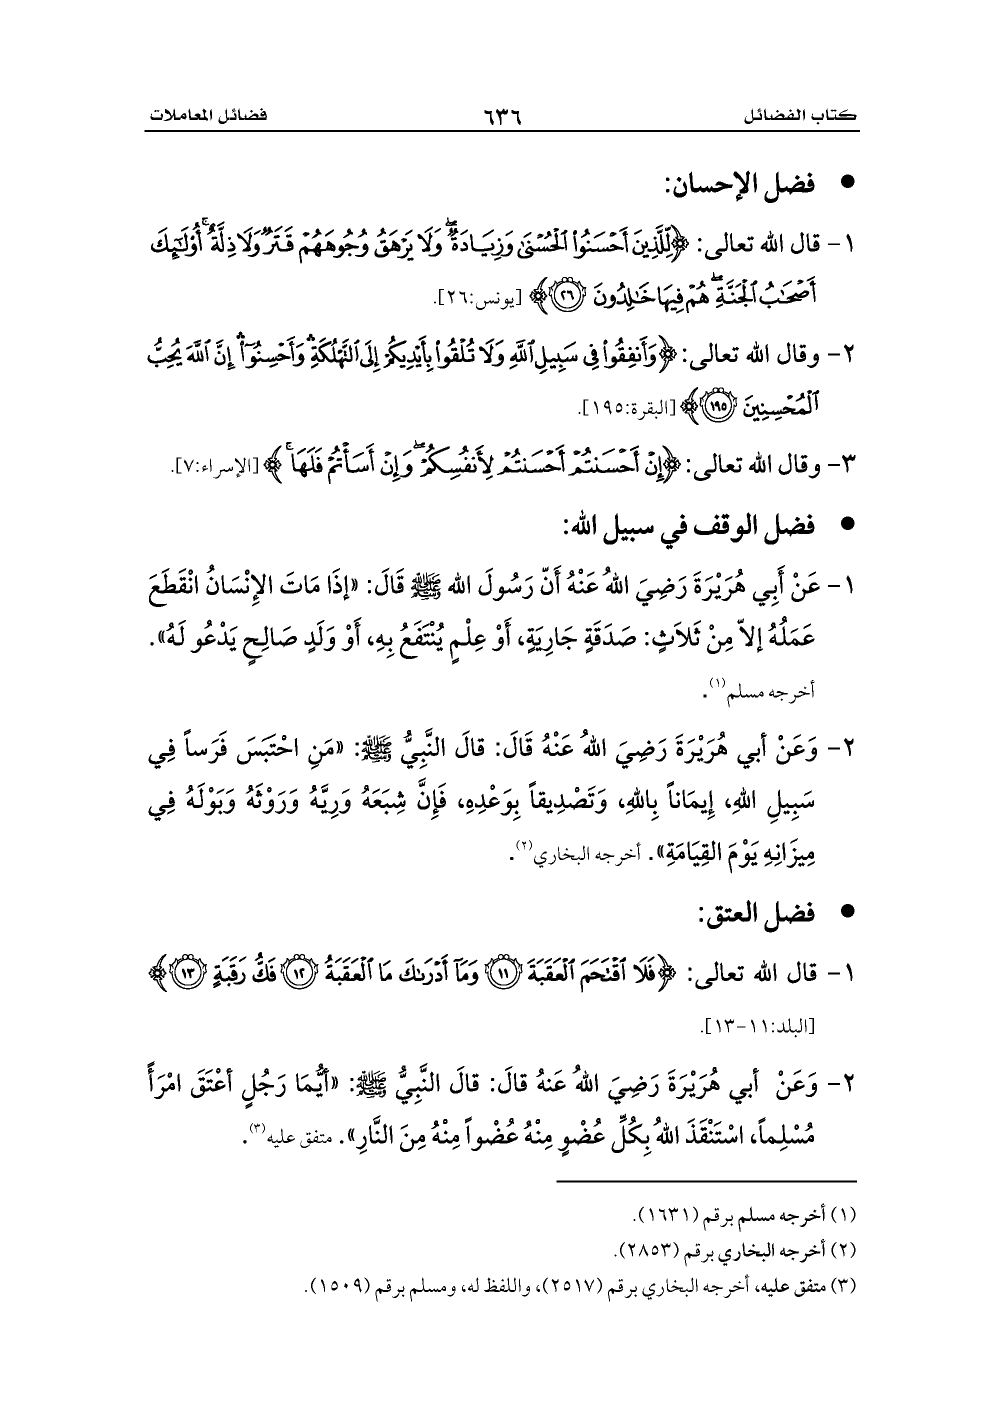 كتاب الفضائل ٦٣٦ فضائل المعاملات
● فضل الإحسان:
١- قال الله تعالى: ﴿لِّلَّذِينَ أَحْسَنُوا۟ ٱلْحُسْنَىٰ وَزِيَادَةٌ ۖ وَلَا يَرْهَقُ وُجُوهَهُمْ قَتَرٌ وَلَا ذِلَّةٌ ۚ أُو۟لَـٰٓئِكَ
أَصْحَـٰبُ ٱلْجَنَّةِ ۖ هُمْ فِيهَا خَـٰلِدُونَ ٢٦﴾ [يونس:٢٦].
٢- وقال الله تعالى: ﴿وَأَنفِقُوا۟ فِى سَبِيلِ ٱللَّهِ وَلَا تُلْقُوا۟ بِأَيْدِيكُمْ إِلَى ٱلتَّهْلُكَةِ ۛ وَأَحْسِنُوٓا۟ ۛ إِنَّ ٱللَّهَ يُحِبُّ
ٱلْمُحْسِنِينَ ١٩٥﴾ [البقرة:١٩٥].
٣- وقال الله تعالى: ﴿إِنْ أَحْسَنتُمْ أَحْسَنتُمْ لِأَنفُسِكُمْ ۖ وَإِنْ أَسَأْتُمْ فَلَهَا ۚ﴾ [الإسراء:٧].
● فضل الوقف في سبيل الله:
١- عَنْ أَبِي هُرَيْرَةَ رَضِيَ اللهُ عَنْهُ أَنّ رَسُولَ الله ﷺ قَالَ: «إذَا مَاتَ الإِنْسَانُ انْقَطَعَ
عَمَلُهُ إلاّ مِنْ ثَلاَثٍ: صَدَقَةٍ جَارِيَةٍ، أَوْ عِلْمٍ يُنْتَفَعُ بِهِ، أَوْ وَلَدٍ صَالِحٍ يَدْعُو لَهُ».
أخرجه مسلم(١).
٢- وَعَنْ أبي هُرَيْرَةَ رَضِيَ اللهُ عَنْهُ قَالَ: قالَ النَّبِيُّ ﷺ: «مَنِ احْتَبَسَ فَرَساً فِي
سَبِيلِ اللهِ، إِيمَاناً بِاللهِ، وَتَصْدِيقاً بِوَعْدِهِ، فَإِنَّ شِبَعَهُ وَرِيَّهُ وَرَوْثَهُ وَبَوْلَهُ فِي
مِيزَانِهِ يَوْمَ القِيَامَةِ». أخرجه البخاري(٢).
● فضل العتق:
١- قال الله تعالى: ﴿فَلَا ٱقْتَحَمَ ٱلْعَقَبَةَ ١١ وَمَآ أَدْرَىٰكَ مَا ٱلْعَقَبَةُ ١٢ فَكُّ رَقَبَةٍ ١٣﴾
[البلد:١١-١٣].
٢- وَعَنْ أبي هُرَيْرَةَ رَضِيَ اللهُ عَنهُ قالَ: قالَ النَّبِيُّ ﷺ: «أَيُّمَا رَجُلٍ أعْتَقَ امْرَأً
مُسْلِماً، اسْتَنْقَذَ اللهُ بِكُلِّ عُضْوٍ مِنْهُ عُضْواً مِنْهُ مِنَ النَّارِ». متفق عليه(٣).
(١) أخرجه مسلم برقم (١٦٣١).
(٢) أخرجه البخاري برقم (٢٨٥٣).
(٣) متفق عليه، أخرجه البخاري برقم (٢٥١٧)، واللفظ له، ومسلم برقم (١٥٠٩).